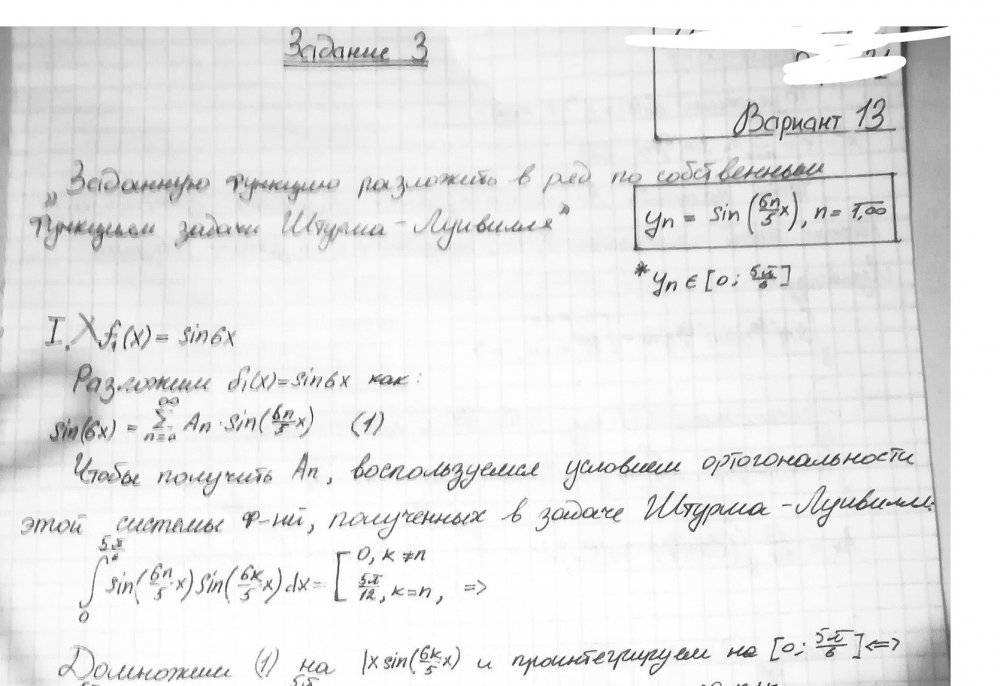 Задание 3
Вариант 13
"Заданную функцию разложить в ряд по собственным
функциям задачи Штурма-Лиувилля"
yn = sin(6n/5 x), n = 1,∞
* yn ∈ [0; 5π/6]
I. f₁(x) = sin6x
Разложим f₁(x)=sin6x как:
sin(6x) = ∞ Σ n=0 An · sin(6n/5 x) (1)
Чтобы получить An, воспользуемся условием ортогональности
этой системы ф-ний, полученных в задаче Штурма-Лиувилля:
∫₀^(5π/6) sin(6n/5 x) sin(6k/5 x) dx = [ 0, k ≠ n
5π/12, k=n, =>
Домножим (1) на |x sin(6k/5 x) и проинтегрируем на [0; 5π/6] <=>